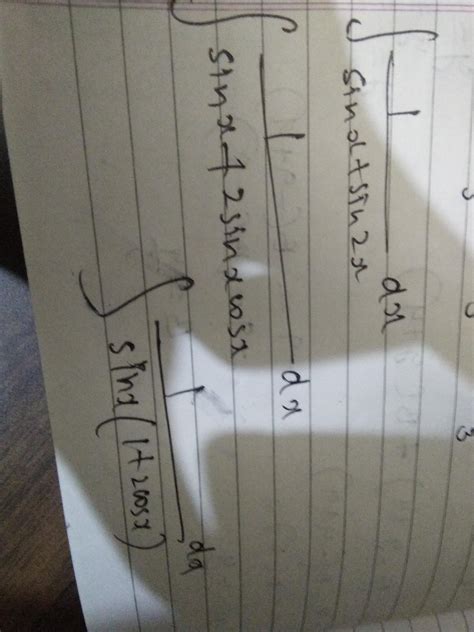 ∫ 1/(sinx+sin2x) dx
∫ 1/(sinx+2sinxcosx) dx
∫ 1/(sinx(1+2cosx)) dx